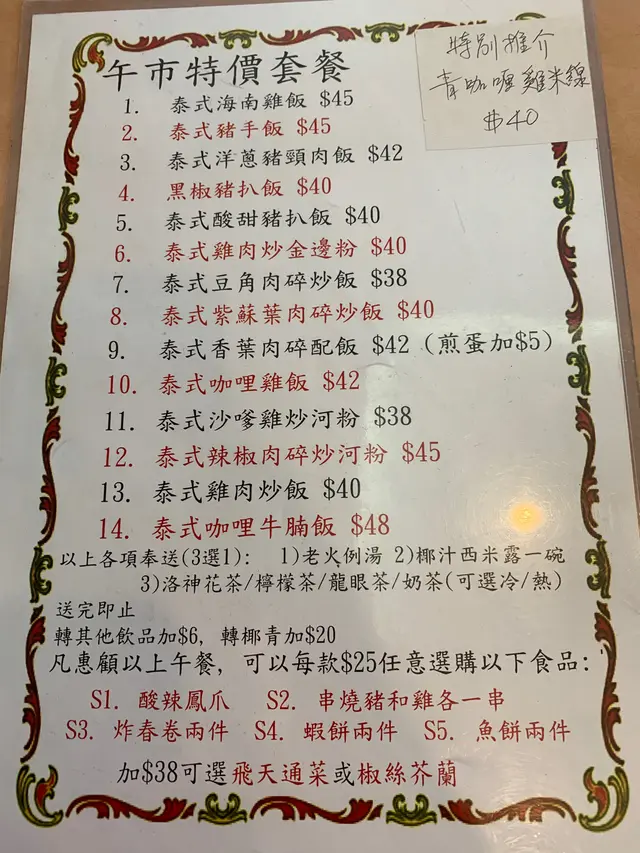 午市特價套餐
特別推介
青咖喱雞米線
$40
1. 泰式海南雞飯 $45
2. 泰式豬手飯 $45
3. 泰式洋蔥豬頸肉飯 $42
4. 黑椒豬扒飯 $40
5. 泰式酸甜豬扒飯 $40
6. 泰式雞肉炒金邊粉 $40
7. 泰式豆角肉碎炒飯 $38
8. 泰式紫蘇葉肉碎炒飯 $40
9. 泰式香葉肉碎配飯 $42 (煎蛋加$5)
10. 泰式咖哩雞飯 $42
11. 泰式沙嗲雞炒河粉 $38
12. 泰式辣椒肉碎炒河粉 $45
13. 泰式雞肉炒飯 $40
14. 泰式咖哩牛腩飯 $48
以上各項奉送(3選1): 1)老火例湯 2)椰汁西米露一碗
3)洛神花茶/檸檬茶/龍眼茶/奶茶(可選冷/熱)
送完即止
轉其他飲品加$6, 轉椰青加$20
凡惠顧以上午餐, 可以每款$25任意選購以下食品:
S1. 酸辣鳳爪 S2. 串燒豬和雞各一串
S3. 炸春卷兩件 S4. 蝦餅兩件 S5. 魚餅兩件
加$38可選飛天通菜或椒絲芥蘭